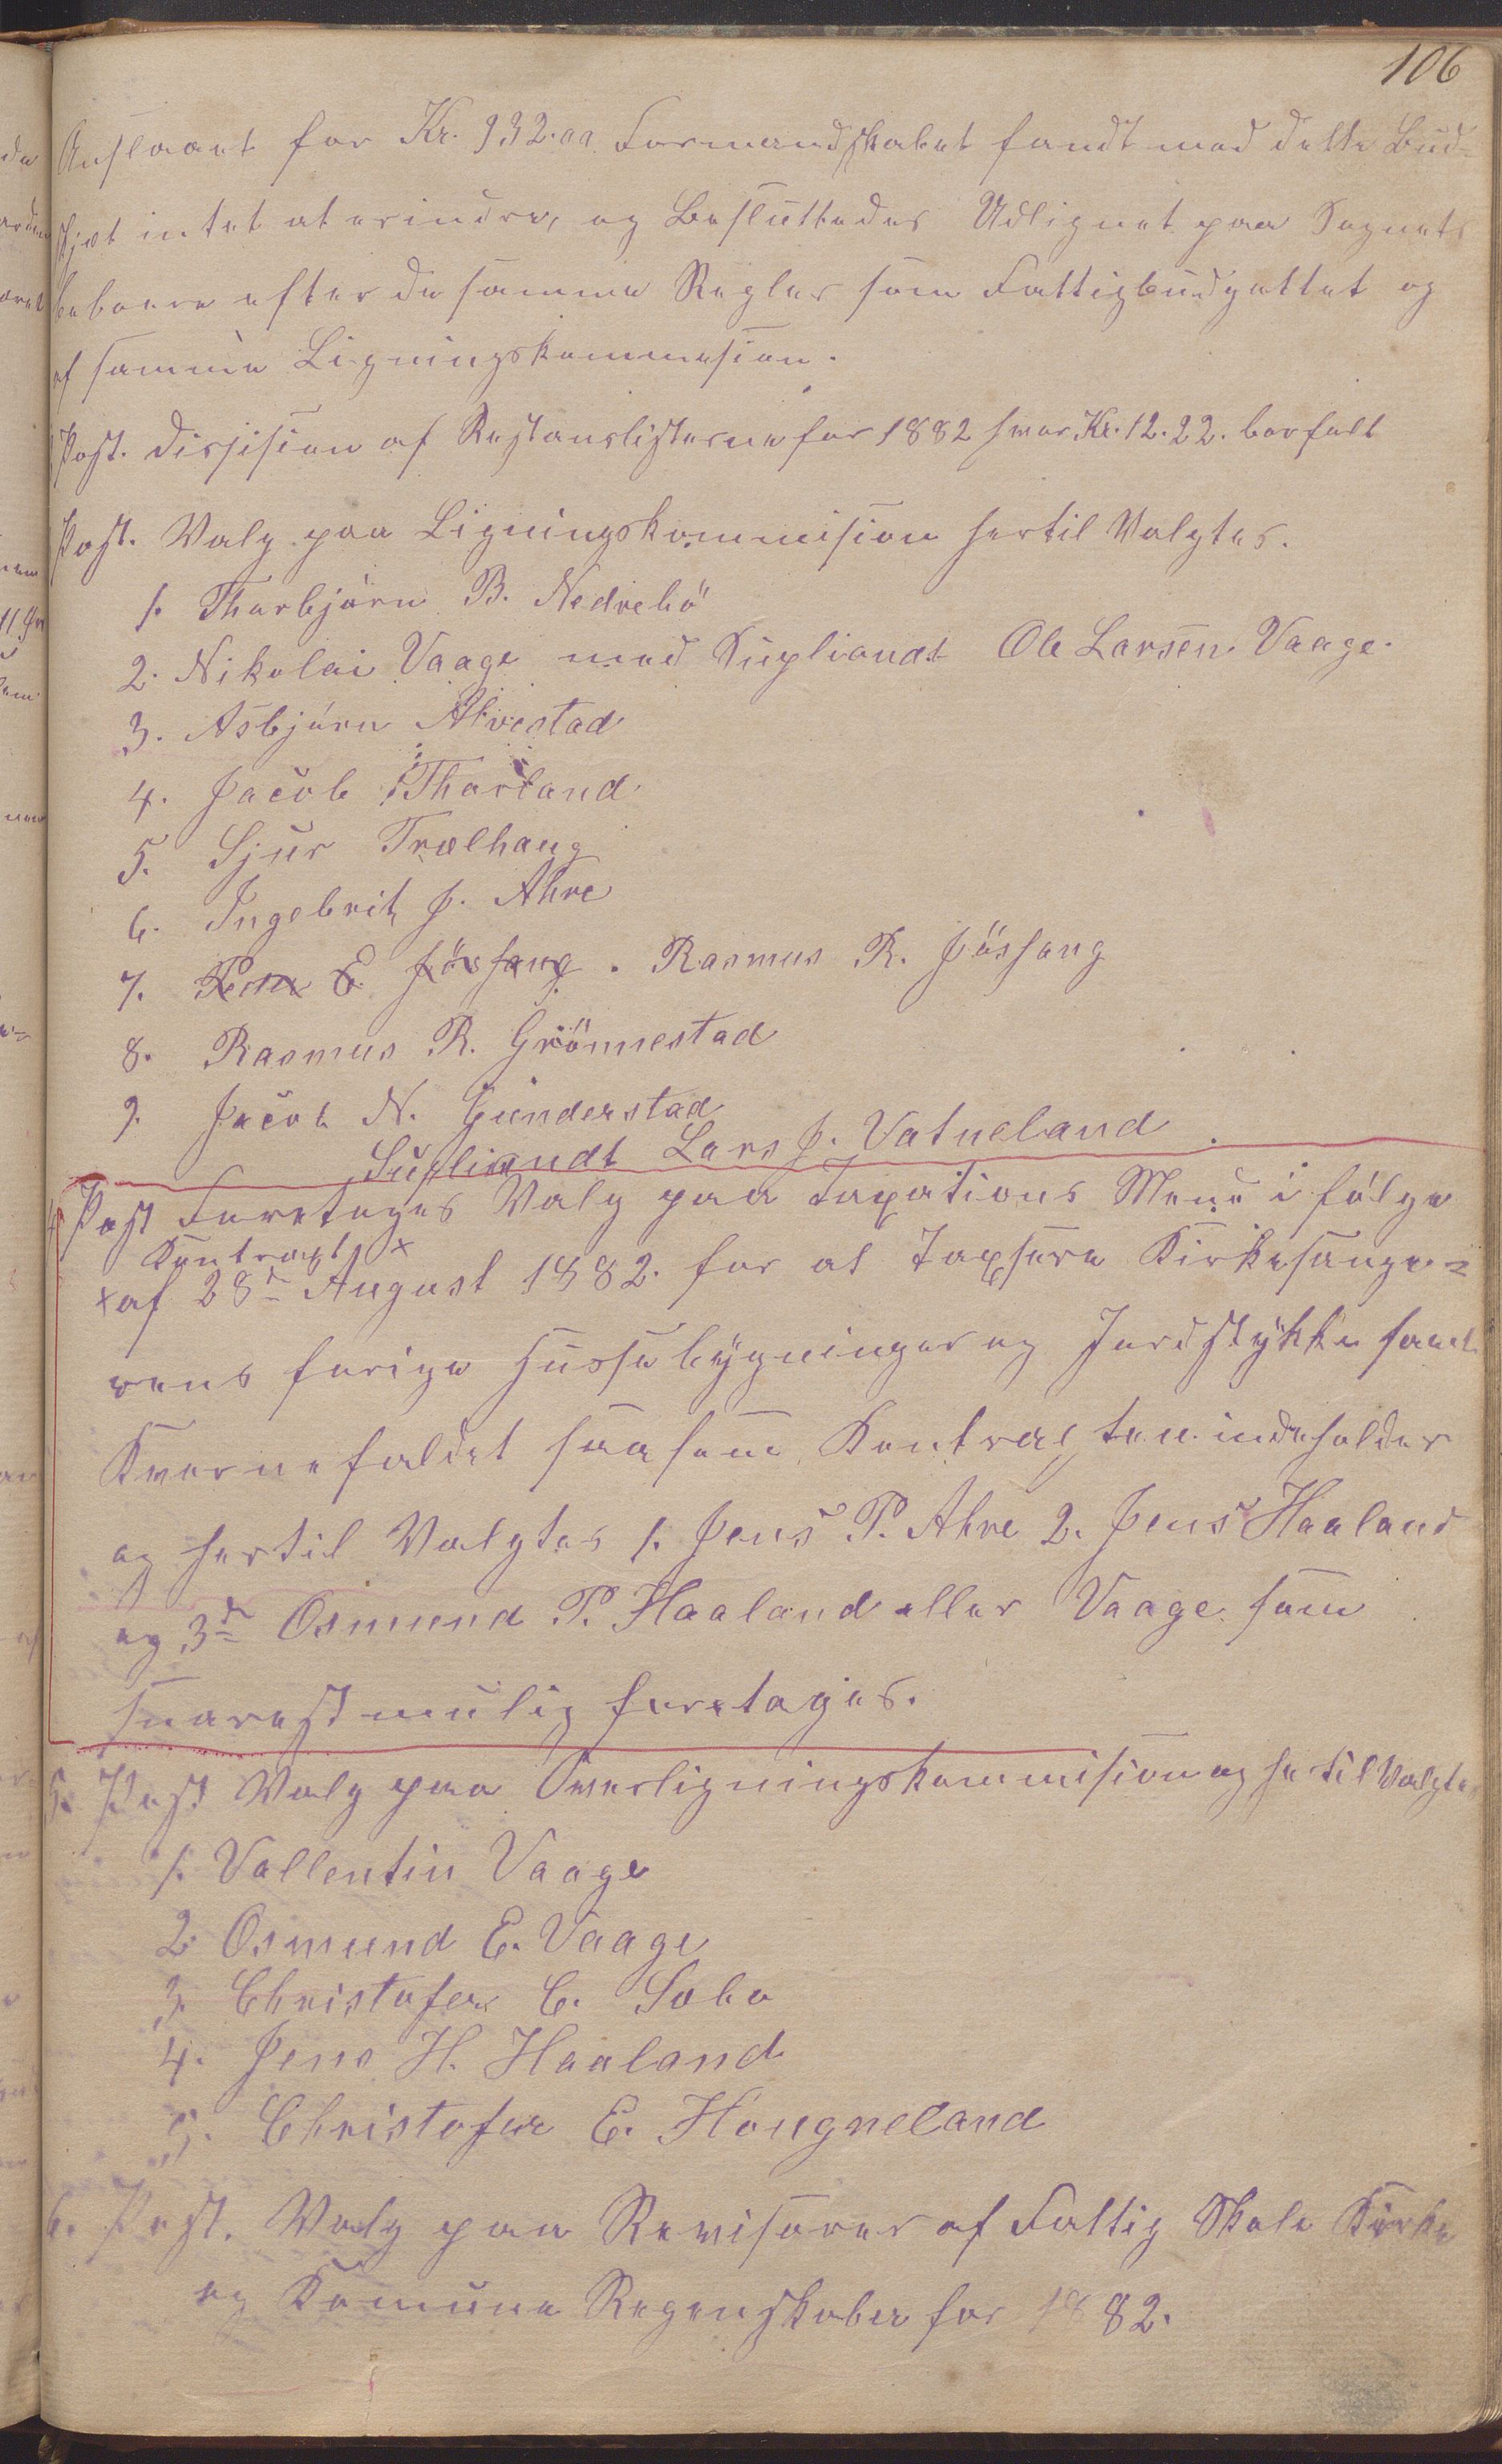 106
Anslaaet for Kr. 932.00. Formandskabet fandt med dette Bud-
skjet intet at erindre, og Besluttedes Udlignet paa Sognets
beboere efter de samme Regler som Fattigbudgettet og
af samme Ligningskommesion.
Post. Dissision af Restanslisterne for 1882 hvor Kr. 12.22. borfalt
Post. Valg paa Ligningskommision hertil Valgtes.
1. Thorbjörn B. Nedrebö
2. Nikolai Vaage med Supliandt Ole Larsen Vaage.
3. Asbjörn Alvestad
4. Jacob Thorland
5. Sjur Trælhaug
6. Ingebrit J. Ahre
7. Peder E Jösfang . Rasmus R. Jössang
8. Rasmus R. Grönnestad
9. Jacob N. Gunderstad
Supliandt Lars J. Vatneland
Post Foretoges Valg paa Taxations Mend i fölge
Kontragt x
x af 28de August 1882. for at Taxsere Kirkesange-
rens forige Hussebygninger og Jordstykke samt
Kvernefaldet saasom Kontragten indeholder
og hertil Valgtes 1. Jens P. Ahre 2. Jens Haaland
og 3de Osmund P. Haaland eller Vaage som
snarest mulig foretages.
5. Post Valg paa Overligningskommision og hertil Valgtes
1. Vallentin Vaage
2. Osmund E. Vaage
3. Christofer C. Sobo
4. Jens H. Haaland
5. Christofer E. Hougneland
6. Post. Valg paa Revisorer af Fattig Skole Kirke
og Komune Regenskaber for 1882.